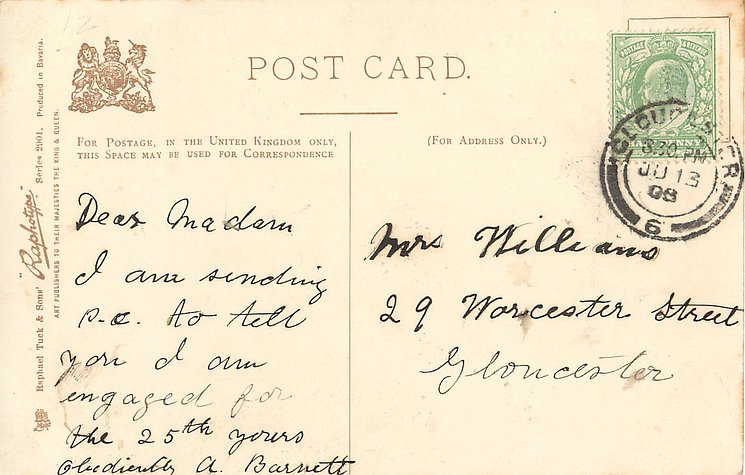 POST CARD.
FOR POSTAGE, IN THE UNITED KINGDOM ONLY,
THIS SPACE MAY BE USED FOR CORRESPONDENCE
(FOR ADDRESS ONLY.)
Raphael Tuck & Sons' "Raphotype" Series 2901. Produced in Bavaria.
ART PUBLISHERS TO THEIR MAJESTIES THE KING & QUEEN.
POSTAGE & REVENUE
HALF PENNY
GLOUCESTER
8.30 PM
JU 13
08
6
12
Dear Madam
I am sending
p.c. to tell
you I am
engaged for
the 25th yours
obediently A. Barnett
Mrs Williams
29 Worcester Street
Gloucester